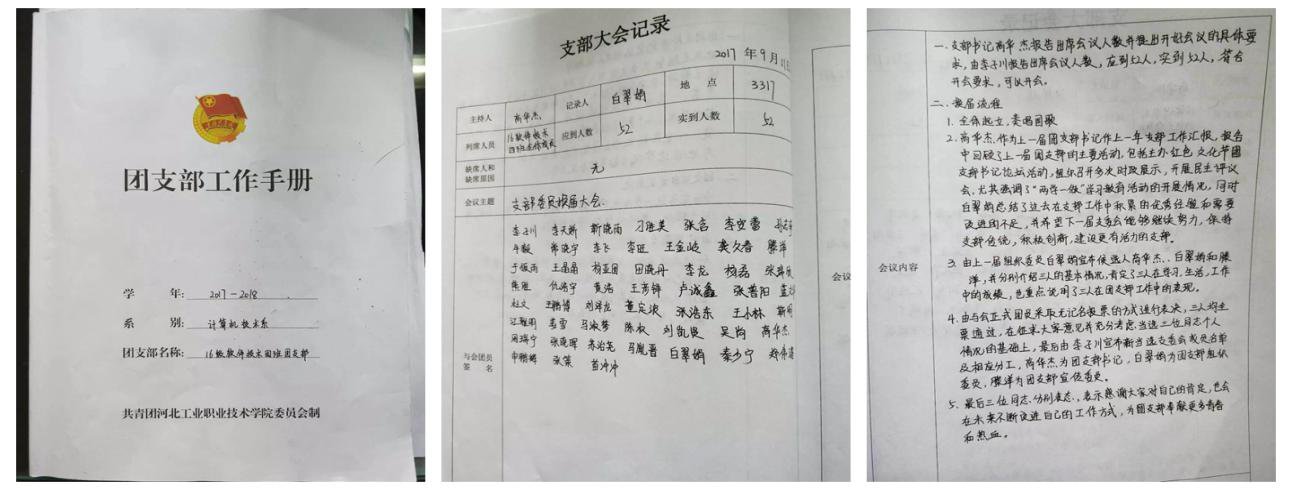 团支部工作手册
学 年： 2017-2018
系 别： 计算机技术系
团支部名称： 16级软件技术四班团支部
共青团河北工业职业技术学院委员会制
支部大会记录
2017 年 9 月
主持人 高华杰 记录人 白翠娟 地 点 3317
列席人员 16软件技术四班全体成员 应到人数 52 实到人数 52
缺席人和
缺席原因 无
会议主题 支部委员换届大会
李子川 李天新 靳晓雨 刁胜美 张含 李雯蕾
牛毅 常晓宇 李飞 李旺 王金岐 龚久春 滕洋
于振雨 王晶晶 杨亚国 田晓丹 李龙 杨磊
陈旭 仇浩宇 黄浩 王彦锋 卢诚鑫 张善阳
赵文 王鹏博 刘泽龙 董定浓 张浩东 王小林
孟雪 马淑梦 陈叔 刘凯良 吴尚 高华杰
周瑞宁 张晓晖 苏治尧 马胤晋 白翠娟 秦少宁
申鹏娜 张策 苗冲冲
与会团员
签 名
会议
一、支部书记高华杰报告出席会议人数并提出开好会议的具体要
求，由李子川报告出席会议人数，应到52人，实到52人，符合
开会要求，可以开会。
二、换届流程
1. 全体起立，奏唱团歌
2. 高华杰作为上一届团支部书记作上一年支部工作汇报，报告
中回顾了上一届团支部的主要活动，包括主办红色文化节团
支部书记论坛活动，组织召开多次时政展示，开展民主评议
会，尤其强调了“两学一做”学习教育活动的开展情况，同时
白翠娟总结了过去在支部工作中积累的优秀经验和需要
改进的不足，并希望下一届支委会能够继续努力，保持
支部传统，积极创新，建设更有活力的支部。
会议内容
3. 由上一届组织委员白翠娟宣布候选人高华杰、白翠娟和滕
洋，并分别介绍三人的基本情况，肯定了三人在学习，生活，工作
中的成绩，也重点说明了三人在团支部工作中的表现。
4. 由与会正式团员采取无记名投票的方式进行表决，三人均全
票通过，在征求大家意见并充分考虑当选三位同志个人
情况的基础上，最后由李子川宣布新当选支委会成员名单
及相应分工，高华杰为团支部书记，白翠娟为团支部组织
委员，滕洋为团支部宣传委员。
5. 最后三位同志分别表态，表示感谢大家对自己的肯定，也会
在未来不断改进自己的工作方式，为团支部奉献更多青春
和热血。